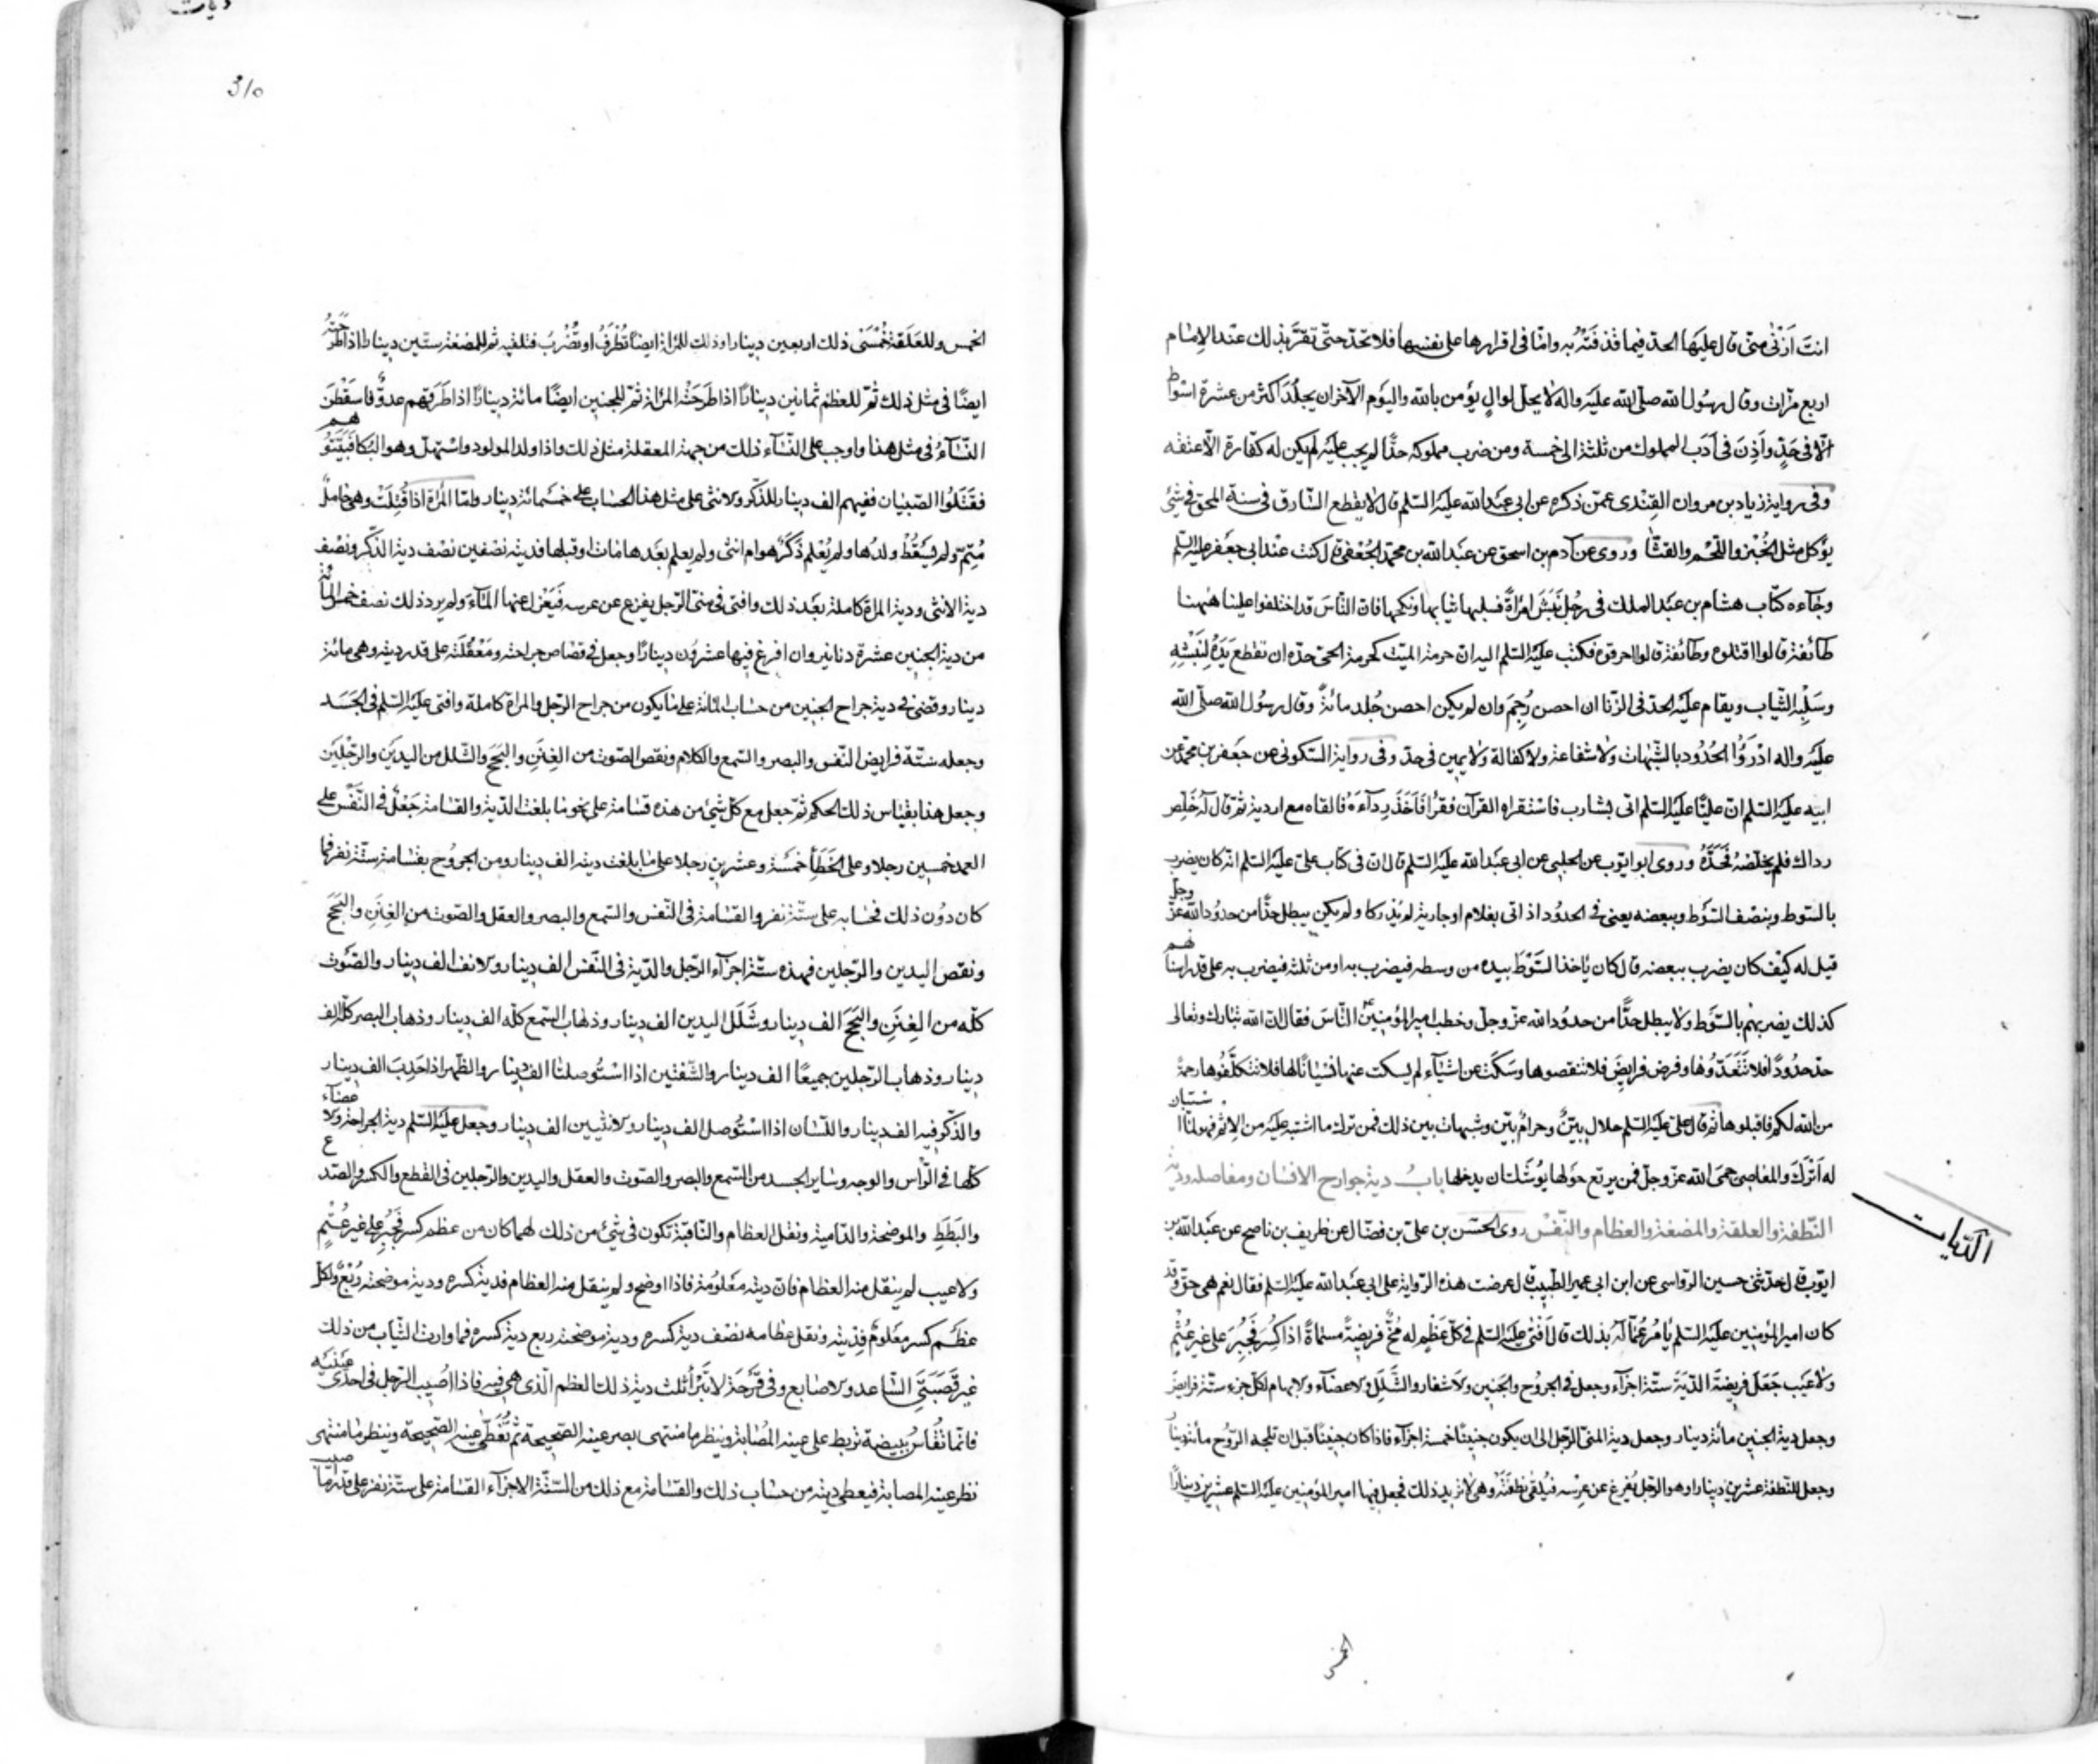 انت اَزْنٰى منّى قال عليها الحدّ فيما قذفَتْهُ به وامّا فى اقرارها على نفسها فلا تحدّ حتّى تقرّ بذلك عند الامام
اربع مرّات وقال رسُول الله صلّى الله عليه واله لا يحلّ لوالٍ يؤمن بالله واليوم الآخر ان يجلُد اكثر من عشرة اسواط
الّا فى حَدٍّ واَذِنَ فى اَدَب المملوك من ثلثة الى خمسة ومن ضرب مملوكه حدًّا لم يجب عليه لم يكن له كفّارة الّا عتقه
وفى رواية زياد بن مروان القِنْدى عمّن ذكره عن ابى عبد الله عليه السّلم قال لا يقطع السّارق فى سنة المحق فى شئ
يؤكل مثل الخُبْز واللّحم والقثّا وروى عن آدم بن اسحق عن عبد الله بن محمّد الجُعْفى قال كنت عند ابى جعفر عليه السّلم
وجاءه كتاب هشام بن عبد الملك فى رجُل نَبَشَ امْرأةً فسلبها ثيابها ونكحها فانّ النّاسَ قد اختلفوا علينا هٰهنا
طائفة قالوا اقتلوه وطائفة قالوا احرقوه فكتب عليه السّلم اليه انّ حرمة الميّت كحرمة الحىّ حدّه ان تقطع يَدَهُ لِنَبْشِهِ
وسَلْبِه الثّياب ويقام عليه الحدّ فى الزّنا ان احصن رُجِمَ وان لم يكن احصن جُلد مائةً وقال رسُول الله صلّى الله
عليه واله ادْرَؤُا الحُدُود بالشّبهات ولا شفاعة ولا كفالة ولا يمين فى حدّ وفى رواية السّكونى عن جعفر بن محمّد عن
ابيه عليه السّلم انّ عليّا عليه السّلم اتى بشارب فاستقراه القرآن فقرأ فَاَخَذَ رداءَهُ فالقاه مع اردية ثم قال له خَلِّص
رداك فلم يخلّصه فحَدَّهُ وروى ابو ايّوب عن الحلبى عن ابى عبد الله عليه السّلم قال انّ فى كتاب علىّ عليه السّلم انّه كان يضرب
بالسّوط وبنصف السّوط وببعضه يعنى فى الحدُود اذ اتى بغلام او جارية لم يُدْركا ولم يكن يبطل حدًّا من حدُود الله عزّ وجلّ
قيل له كيف كان يضرب ببعضه قال كان ياخذ السّوط بيده من وسطه فيضرب به او من ثلثه فيضرب به على قدر اسنانهم
كذلك يضربهم بالسّوط ولا يبطل حدًّا من حدُود الله عزّ وجلّ وخطب امير المؤمنين ع النّاس فقال انّ الله تبارك وتعالى
حدّ حدُودًا فلا تَتَعَدّوها وفرض فرايض فلا تنقصوها وسكت عن اشيآء لم يسكت عنها نسيانًا لها فلا تتكلّفوها رحمةً
من الله لكم فاقبلوها ثم قال علىّ عليه السّلم حلال بيّنٌ وحرامٌ بيّن وشبهات بين ذلك فمن ترك ما اشتبه عليه من الاثم فهو لما استبان
له اَتْرَكُ والمعاصى حمَى الله عزّ وجلّ فمن يرتع حولها يُوشك ان يدخلها بابُ دية جوارح الانسان ومفاصله ودية
النّطفة والعلقة والمضغة والعظام والنّفس روى الحسن بن علىّ بن فضّال عن ظريف بن ناصح عن عبد الله بن
ايّوب قال حدّثنى حسين الرّواسى عن ابن ابى عمير الطّبيب قال عرضت هذه الرّواية على ابى عبد الله عليه السّلم فقال نعم هى حقّ وقد
كان امير المؤمنين عليه السّلم يأمُرُ عُمّاله بذلك قال اَفْتَى عليه السّلم فى كلّ عظم له مُخّ فريضةً مسمّاةً اذا كُسِرَ فجُبِرَ على غير عُثْمٍ
ولا عَيب جَعَلَ فريضة الدّيَة ستّة اجزآء وجعل فى الجروح والجنين والاشفار والشّلَل والاعضآء والابهام لكلّ جزء ستّة فرايض
وجعل دية الجنين مائة دينار وجعل دية المنىّ الرّجل الى ان يكون جنينًا خمسة اجزآء فاذا كان جنينًا قبل ان تلجه الرّوح مائة دينار
وجعل للنّطفة عشرين دينارا وهو الرّجل يُفْرِغ عن عِرْسه فيُلقى نطفَتَهُ وهى لا تريد ذلك فجعل فيها امير المؤمنين عليه السّلم عشرين دينارًا
الخمس
الدّيات
310
الخمس وللعَلَقة خُمْسَى ذلك اربعين دينارا وذلك للمرأة ايضًا تُطْرَقُ او تُضْرَبُ فتلقيه ثم للمضغة ستّين دينارا اذا طَرَحَتْهُ
ايضًا فى مثل ذلك ثمّ للعظم ثمانين دينارًا اذا طَرَحَتْه المرأة ثمّ للجنين ايضًا مائة دينارًا اذا طَرَقهم عدوّ فاسقطْنَ
النّسآءُ فى مثل هذا واوجب على النّسآء ذلك من جهة المعقلة مثل ذلك واذا ولد المولود واستهلّ وهو البُكا فَبَيَّتُوهم
فقَتَلُوا الصّبيان ففيهم الف دينار للذّكر والانثى على مثل هذا الحساب على خمسمائة دينار وامّا المرأة اذا قُتِلَتْ وهى حاملٌ
مُتِمّ ولم يَسْقُطْ ولدُها ولم يُعْلم ذَكَرٌ هو ام انثى ولم يعلم بعدها مات او قبلها فديته نصْفين نصْف دية الذّكر ونصْف
دية الانثى ودية المرأة كاملة بعد ذلك وافتى فى منىّ الرّجل يفزع عن عرسه فيَعْزل عنها المآءَ ولم يرد ذلك نصف خمس المائة
من دية الجنين عشرة دنانير وان افرغ فيها عشرُون دينارًا وجعل فى قصاص جراحته ومَعْقُلَته على قدر ديته وهى مائة
دينار وقضى فى دية جراح الجنين من حساب المائة على ما يكون من جراح الرّجل والمرأة كاملة وافتى عليه السّلم فى الجَسَد
وجعله ستّة فرايض النّفس والبصر والسّمع والكلام ونقص الصّوت من الغَنَنِ والبَحَحِ والشّلل من اليدين والرّجلين
وجعل هذا بقياس ذلك الحكم ثمّ جعل مع كلّ شئ من هذه قسامة على نحو ما بلغت الدّية والقسامة جَعَلَ فى النّفس على
العمد خمسين رجلا وعلى الخَطَأِ خمسَة وعشرين رجلا على ما بلغت ديته الف دينار ومن الجروح بقسامة ستّة نفر فما
كان دُون ذلك فحسابه على ستّة نفر والقسامة فى النّفس والسّمع والبصر والعقل والصّوت من الغَنَنِ والبَحَحِ
ونقص اليدين والرّجلين فهذه ستّة اجزآء الرّجل والدّية فى النّفس الف دينار والانف الف دينار والصّوت
كلّه من الغَنَنِ والبَحَحِ الف دينار وشَلَل اليدين الف دينار وذهاب السّمع كلّه الف دينار وذهاب البصر كلّه الف
دينار وذهاب الرّجلين جميعًا الف دينار والشّفتين اذا اسْتُوصلتا الف دينار والظّهر اذا حَدِبَ الف دينار
والذّكر فيه الف دينار واللّسان اذا اسْتُوصل الف دينار والانثيين الف دينار وجعل عليه السّلم دية الجراحة والاعضآء
كلّها فى الرّأس والوجه وساير الجسد من السّمع والبصر والصّوت والعقل واليدين والرّجلين فى القطع والكسر والصّدع
والبَطَطِ والموضحة والدّامية ونقل العظام والنّاقبة تكون فى شئ من ذلك فما كان من عظم كسر فجُبِرَ على غير عُثْمٍ
ولا عيب لم ينقل منه العظام فانّ ديته مَعْلُومَة فاذا اوضح ولم ينقل منه العظام فدية كسره ودية موضحته رُبْعٌ ولكلّ
عظم كسر معلومٌ فدِيَته ونقل عظامه نصْف دية كسره ودية موضحته ربع دية كسره فما وارت الثّياب من ذلك
غير قَصَبَتَى السّاعد والاصابع وفى قَرْحَة لا تَبْرَأُ ثلث دية ذلك العظم الّذى هى فيه فاذا اُصيب الرّجل فى احدى عينيه
فانّما تُقاس ببيضة تربط على عينه المُصابة وينظر ما منتهى بصر عينه الصّحيحة ثمّ تُغَطّى عينه الصّحيحة وينظر ما منتهى
نظر عينه المصابة فيعطى ديته من حساب ذلك والقسامة مع ذلك من السّتّة الاجزآء القسامة على ستّة نفر على قدر ما اصيب